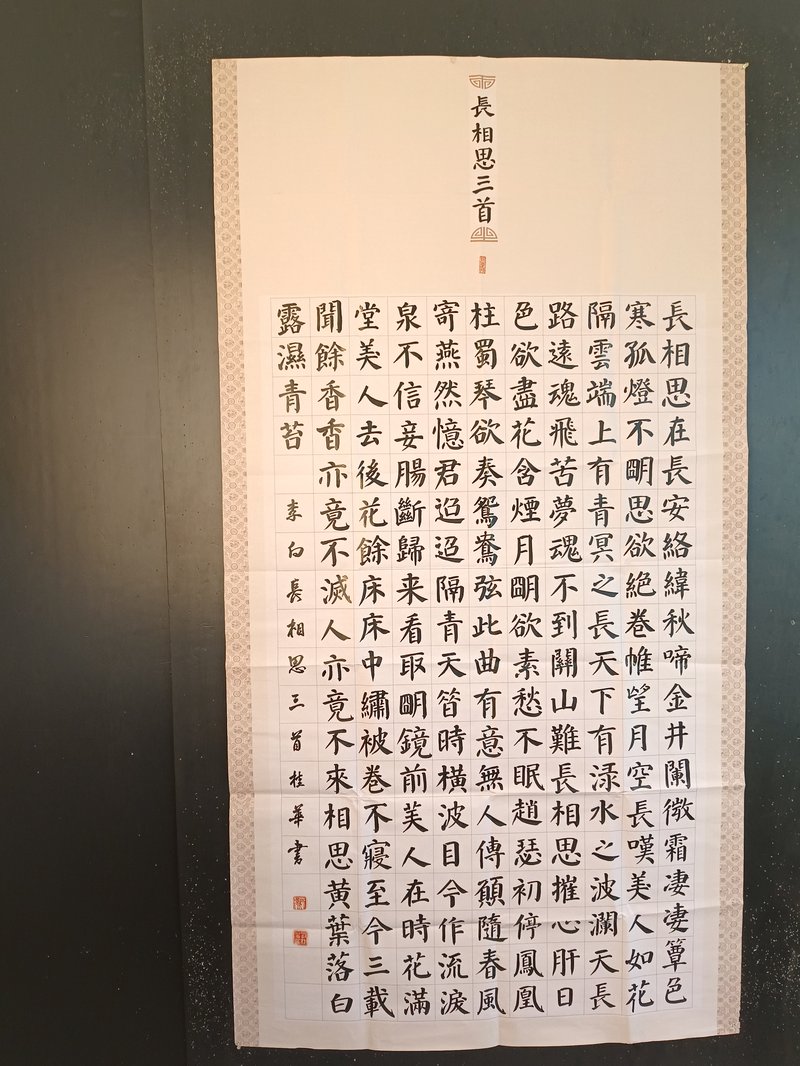 長相思三首
長相思在長安絡緯秋啼金井闌微霜凄凄簟色
寒孤燈不明思欲絕卷帷望月空長嘆美人如花
隔雲端上有青冥之長天下有淥水之波瀾天長
路遠魂飛苦夢魂不到關山難長相思摧心肝日
色欲盡花含煙月明欲素愁不眠趙瑟初停鳳凰
柱蜀琴欲奏鴛鴦弦此曲有意無人傳願隨春風
寄燕然憶君迢迢隔青天昔時橫波目今作流淚
泉不信妾腸斷歸来看取明鏡前美人在時花滿
堂美人去後花餘床床中繡被卷不寢至今三載
聞餘香香亦竟不滅人亦竟不來相思黄葉落白
露濕青苔
李白長相思三首桂華書